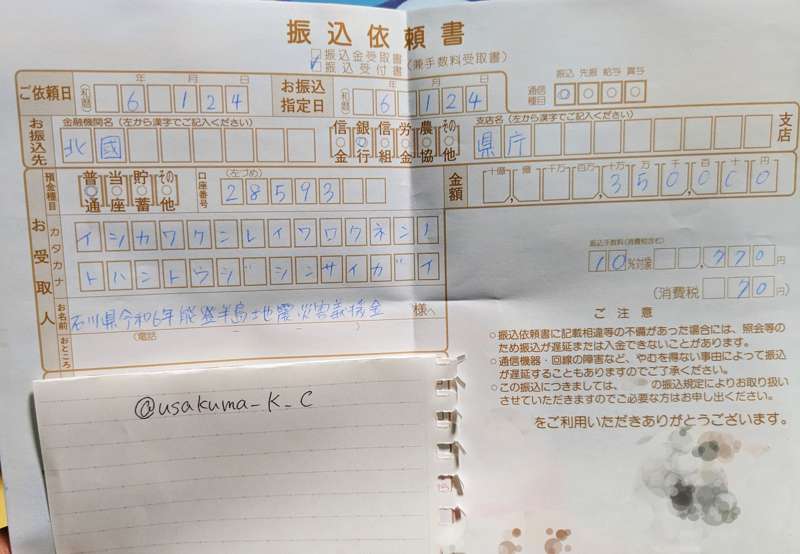 振込依頼書
振込金受取書(兼手数料受取書)
✓振込受付書
ご依頼日 (和暦) 年 6 月 1 日 24
お振込指定日 (和暦) 年 6 月 1 日 24
通信種目 振込 先振 給与 賞与
お振込先
金融機関名(左から漢字でご記入ください)
北國
信金 銀行 信組 労金 農協 その他
支店名(左から漢字でご記入ください)
県庁 支店
預金種目 普通 当座 貯蓄 その他
口座番号 (左づめ) 28593
金額 十億 億 千万 百万 十万 万 千 百 十 円
350,000
お受取人
カタカナ
イシカワケンレイワロクネンノ
トハントウジシンサイガイ
お名前
石川県令和6年能登半島地震災害義援金 様へ
おところ
(電話 - - )
振込手数料(消費税含む)
10%対象 770円
(消費税 70円)
ご注意
○振込依頼書に記載相違等の不備があった場合には、照会等の
ため振込が遅延または入金できないことがあります。
○通信機器・回線の障害など、やむを得ない事由によって振込
が遅延することもありますのでご了承ください。
○この振込につきましては、 の振込規定によりお取り扱い
させていただきますのでご必要な方はお申し出ください。
をご利用いただきありがとうございます。
@usakuma_K_C